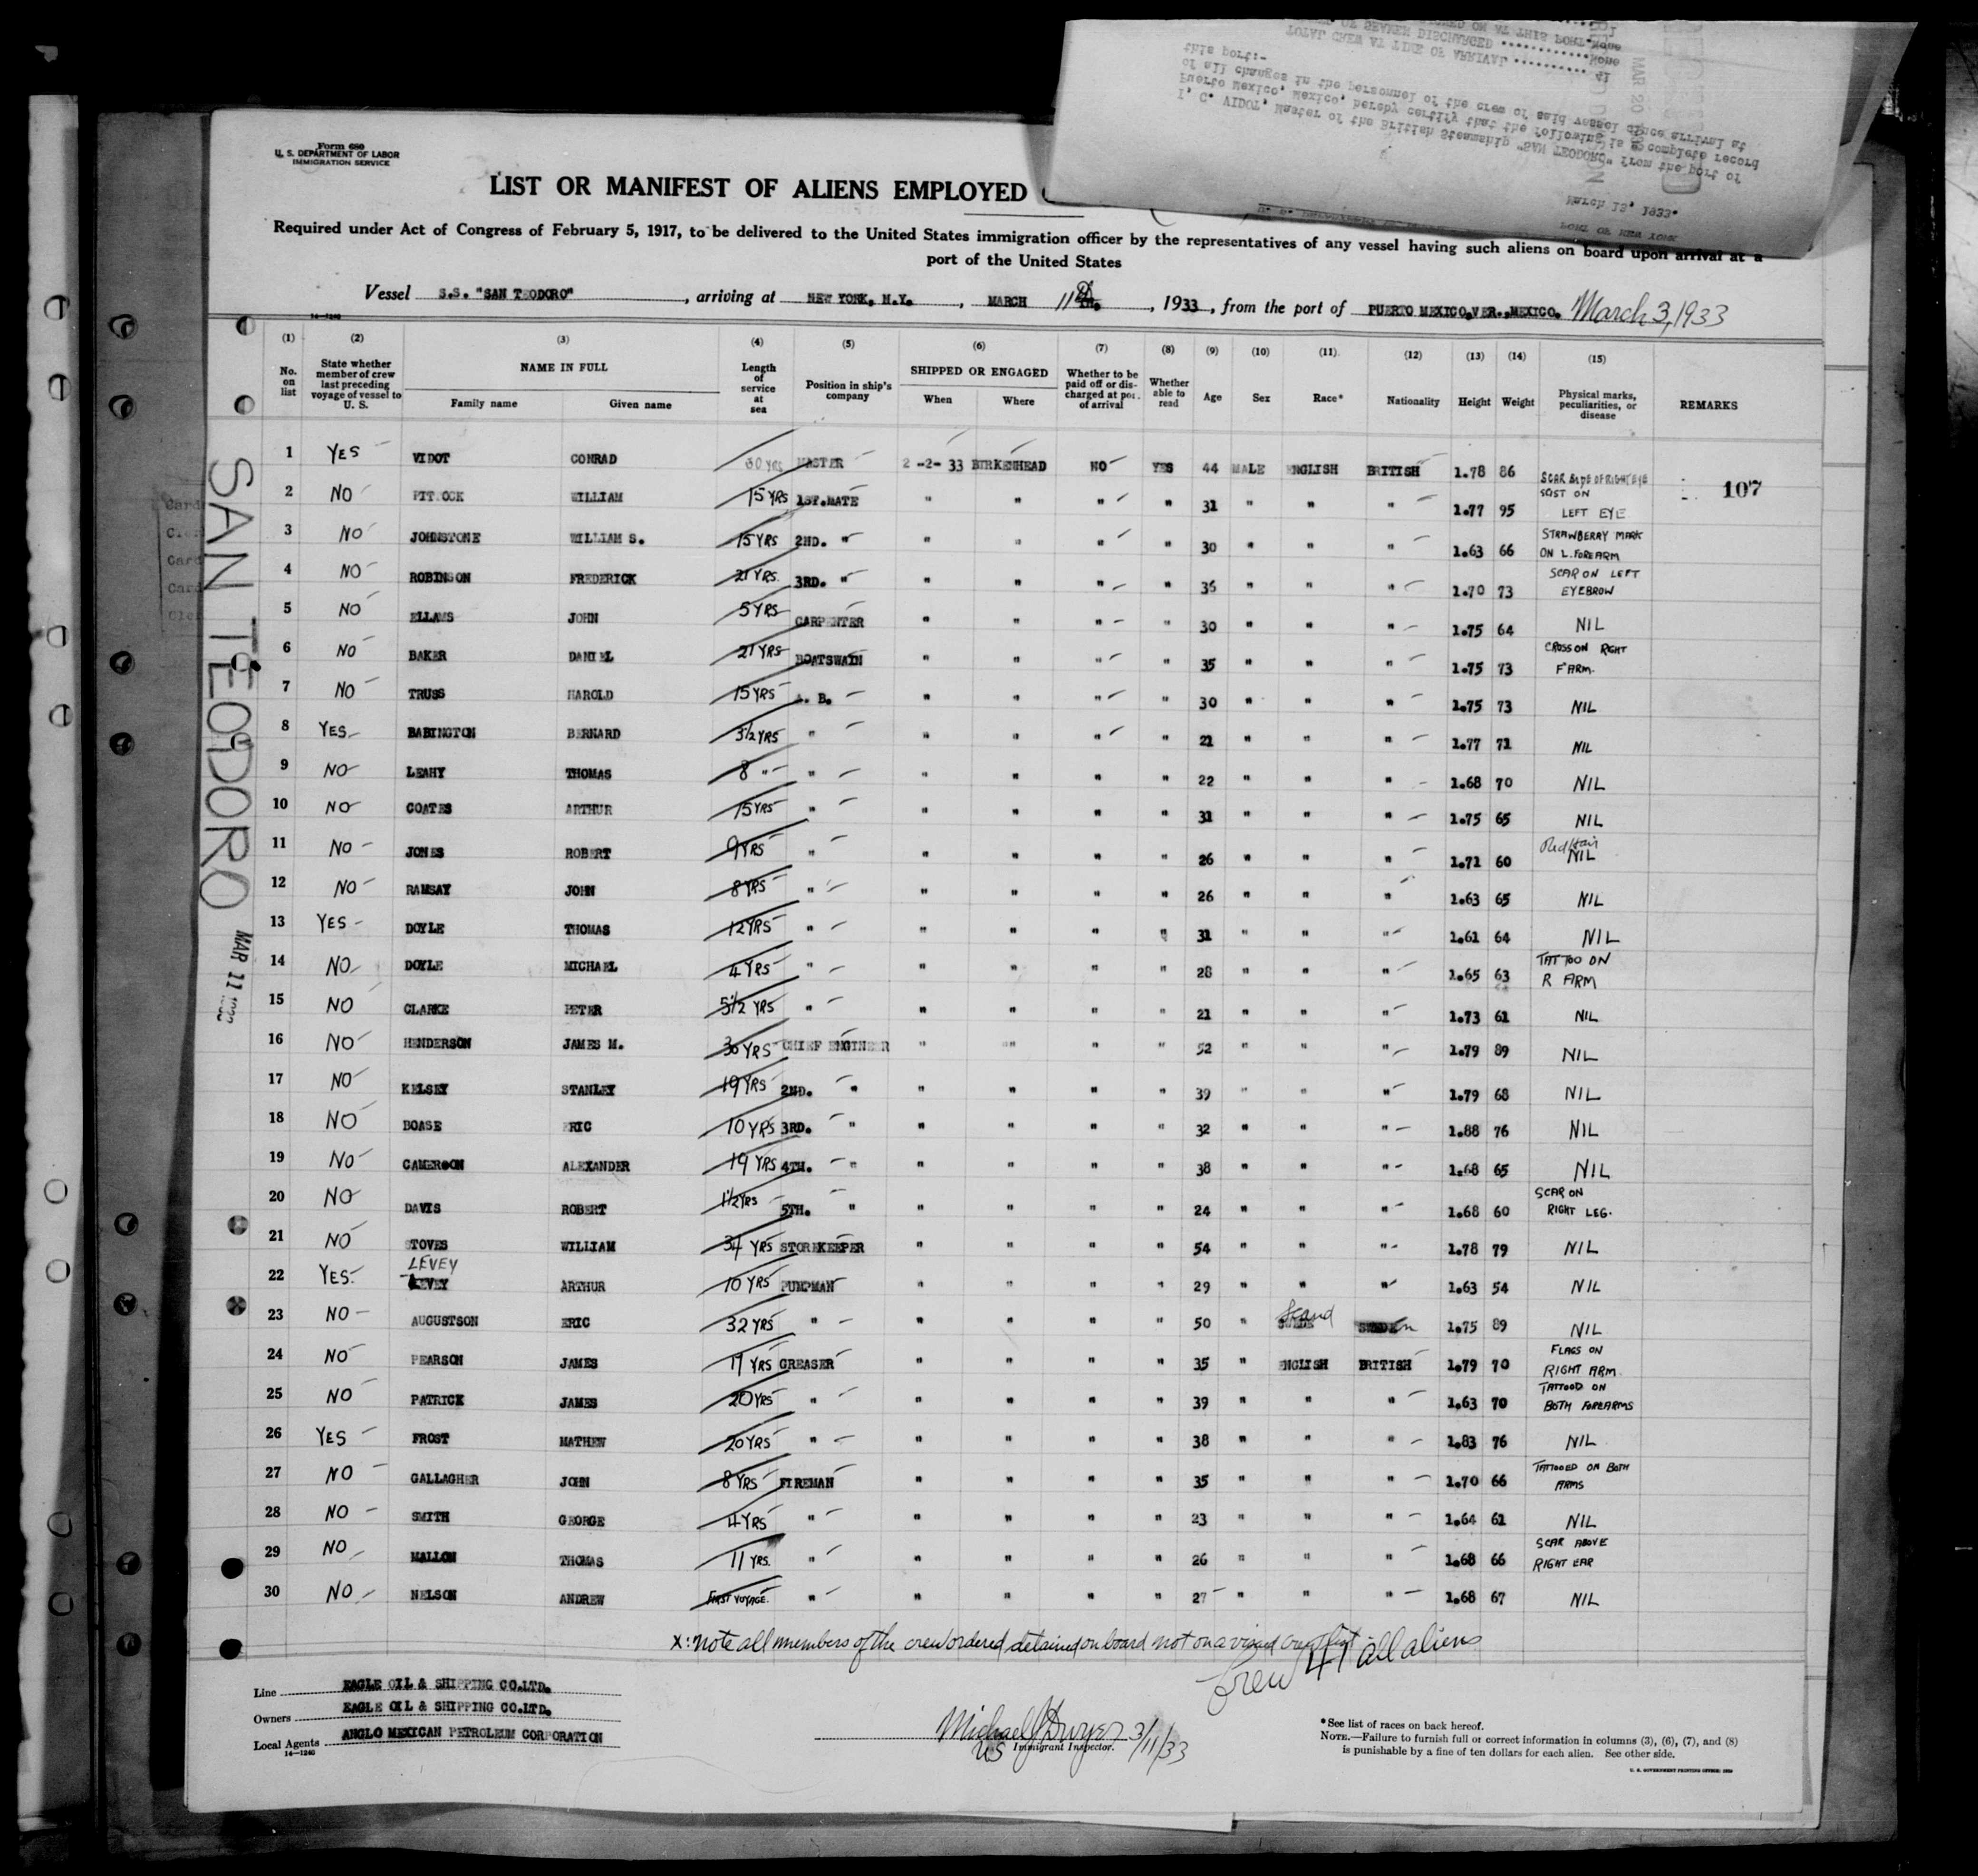 Form 680
U. S. DEPARTMENT OF LABOR
IMMIGRATION SERVICE
LIST OR MANIFEST OF ALIENS EMPLOYED
Required under Act of Congress of February 5, 1917, to be delivered to the United States immigration officer by the representatives of any vessel having such aliens on board upon arrival at a
port of the United States
PORT OF NEW YORK
March 13, 1933.
I, C. VIDOT, Master of the British Steamship "SAN TEODORO" from the port of
Puerto Mexico, Mexico, hereby certify that the following is a complete record
of all changes in the personnel of the crew of said vessel since arrival at
this port:-
TOTAL CREW AT TIME OF ARRIVAL .......... 41
OF SEAMEN DISCHARGED ............ None
ON AT THIS PORT None
Vessel S.S. "SAN TEODORO", arriving at NEW YORK, N.Y., MARCH 11th, 1933, from the port of PUERTO MEXICO,VER.,MEXICO. March 3, 1933
14-1240
(1) (2) (3) (4) (5) (6) (7) (8) (9) (10) (11) (12) (13) (14) (15)
No. on list State whether member of crew last preceding voyage of vessel to U. S. NAME IN FULL Family name Given name Length of service at sea Position in ship's company SHIPPED OR ENGAGED When Where Whether to be paid off or discharged at port of arrival Whether able to read Age Sex Race* Nationality Height Weight Physical marks, peculiarities, or disease REMARKS
1 YES VIDOT CONRAD 30 YRS MASTER 2-2-33 BIRKENHEAD NO YES 44 MALE ENGLISH BRITISH 1.78 86 SCAR SIDE OF RIGHT EYE
2 NO WILLIAM 15 YRS 1ST.MATE " " " " 31 " " " 1.77 95 ON LEFT EYE 107
3 NO JOHNSTONE WILLIAM S. 15 YRS 2ND. " " " " " 30 " " " 1.63 66 STRAWBERRY MARK ON L. FOREARM
4 NO ROBINSON FREDERICK 21 YRS. 3RD. " " " " " 36 " " " 1.70 73 SCAR ON LEFT EYEBROW
5 NO ELLAMS JOHN 5 YRS CARPENTER " " " " 30 " " " 1.75 64 NIL
6 NO BAKER DANIEL 21 YRS BOATSWAIN " " " " 35 " " " 1.75 73 CROSS ON RIGHT F'ARM.
7 NO TRUSS HAROLD 15 YRS A. B. " " " " 30 " " " 1.75 73 NIL
8 YES BABINGTON BERNARD 3 1/2 YRS " " " " " 21 " " " 1.77 71 NIL
9 NO LEAHY THOMAS 8 " " " " " " 22 " " " 1.68 70 NIL
10 NO COATES ARTHUR 15 YRS " " " " " 31 " " " 1.75 65 NIL
11 NO JONES ROBERT 9 YRS " " " " " 26 " " " 1.71 60 Red Hair NIL
12 NO RAMSAY JOHN 8 YRS " " " " " 26 " " " 1.63 65 NIL
13 YES DOYLE THOMAS 12 YRS " " " " " 31 " " " 1.61 64 NIL
14 NO DOYLE MICHAEL 4 YRS " " " " " 28 " " " 1.65 63 TATTOO ON R ARM
15 NO CLARKE PETER 5 1/2 YRS " " " " " 21 " " " 1.73 61 NIL
16 NO HENDERSON JAMES M. 30 YRS CHIEF ENGINEER " " " " 52 " " " 1.79 89 NIL
17 NO KELSEY STANLEY 19 YRS 2ND. " " " " " 39 " " " 1.79 68 NIL
18 NO BOASE ERIC 10 YRS 3RD. " " " " " 32 " " " 1.88 76 NIL
19 NO CAMERON ALEXANDER 19 YRS 4TH. " " " " " 38 " " " 1.68 65 NIL
20 NO DAVIS ROBERT 1 1/2 YRS 5TH. " " " " " 24 " " " 1.68 60 SCAR ON RIGHT LEG.
21 NO STOVES WILLIAM 34 YRS STOREKEEPER " " " " 54 " " " 1.78 79 NIL
22 YES. LEVEY ARTHUR 10 YRS PUMPMAN " " " " 29 " " " 1.63 54 NIL
23 NO AUGUSTSON ERIC 32 YRS " " " " " 50 " Scand SWEDEN 1.75 89 NIL
24 NO PEARSON JAMES 17 YRS GREASER " " " " 35 " ENGLISH BRITISH 1.79 70 FLAGS ON RIGHT ARM
25 NO PATRICK JAMES 20 YRS " " " " " 39 " " " 1.63 70 TATTOOD ON BOTH FOREARMS
26 YES FROST MATHEW 20 YRS " " " " " 38 " " " 1.83 76 NIL
27 NO GALLAGHER JOHN 8 YRS FIREMAN " " " " 35 " " " 1.70 66 TATTOOED ON BOTH ARMS
28 NO SMITH GEORGE 4 YRS " " " " " 23 " " " 1.64 61 NIL
29 NO MALLON THOMAS 11 YRS. " " " " " 26 " " " 1.68 66 SCAR ABOVE RIGHT EAR
30 NO NELSON ANDREW FIRST VOYAGE. " " " " " 27 " " " 1.68 67 NIL
SAN TEODORO
MAR 11
X: note all members of the crew ordered detained on board not on a visaed crew list
Crew 41 all aliens
Line EAGLE OIL & SHIPPING CO.LTD.
Owners EAGLE OIL & SHIPPING CO.LTD.
Local Agents ANGLO MEXICAN PETROLEUM CORPORATION
14-1240
Michael J Dwyer 3/11/33
US Immigrant Inspector.
*See list of races on back hereof.
NOTE.—Failure to furnish full or correct information in columns (3), (6), (7), and (8)
is punishable by a fine of ten dollars for each alien. See other side.